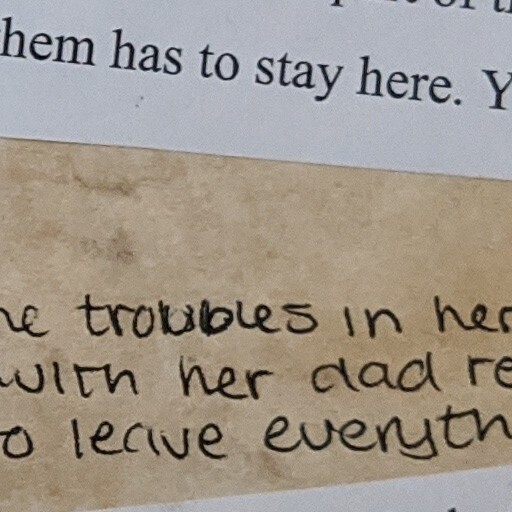 hem has to stay here. Y
he troubles in her
with her dad re
o leave everyth